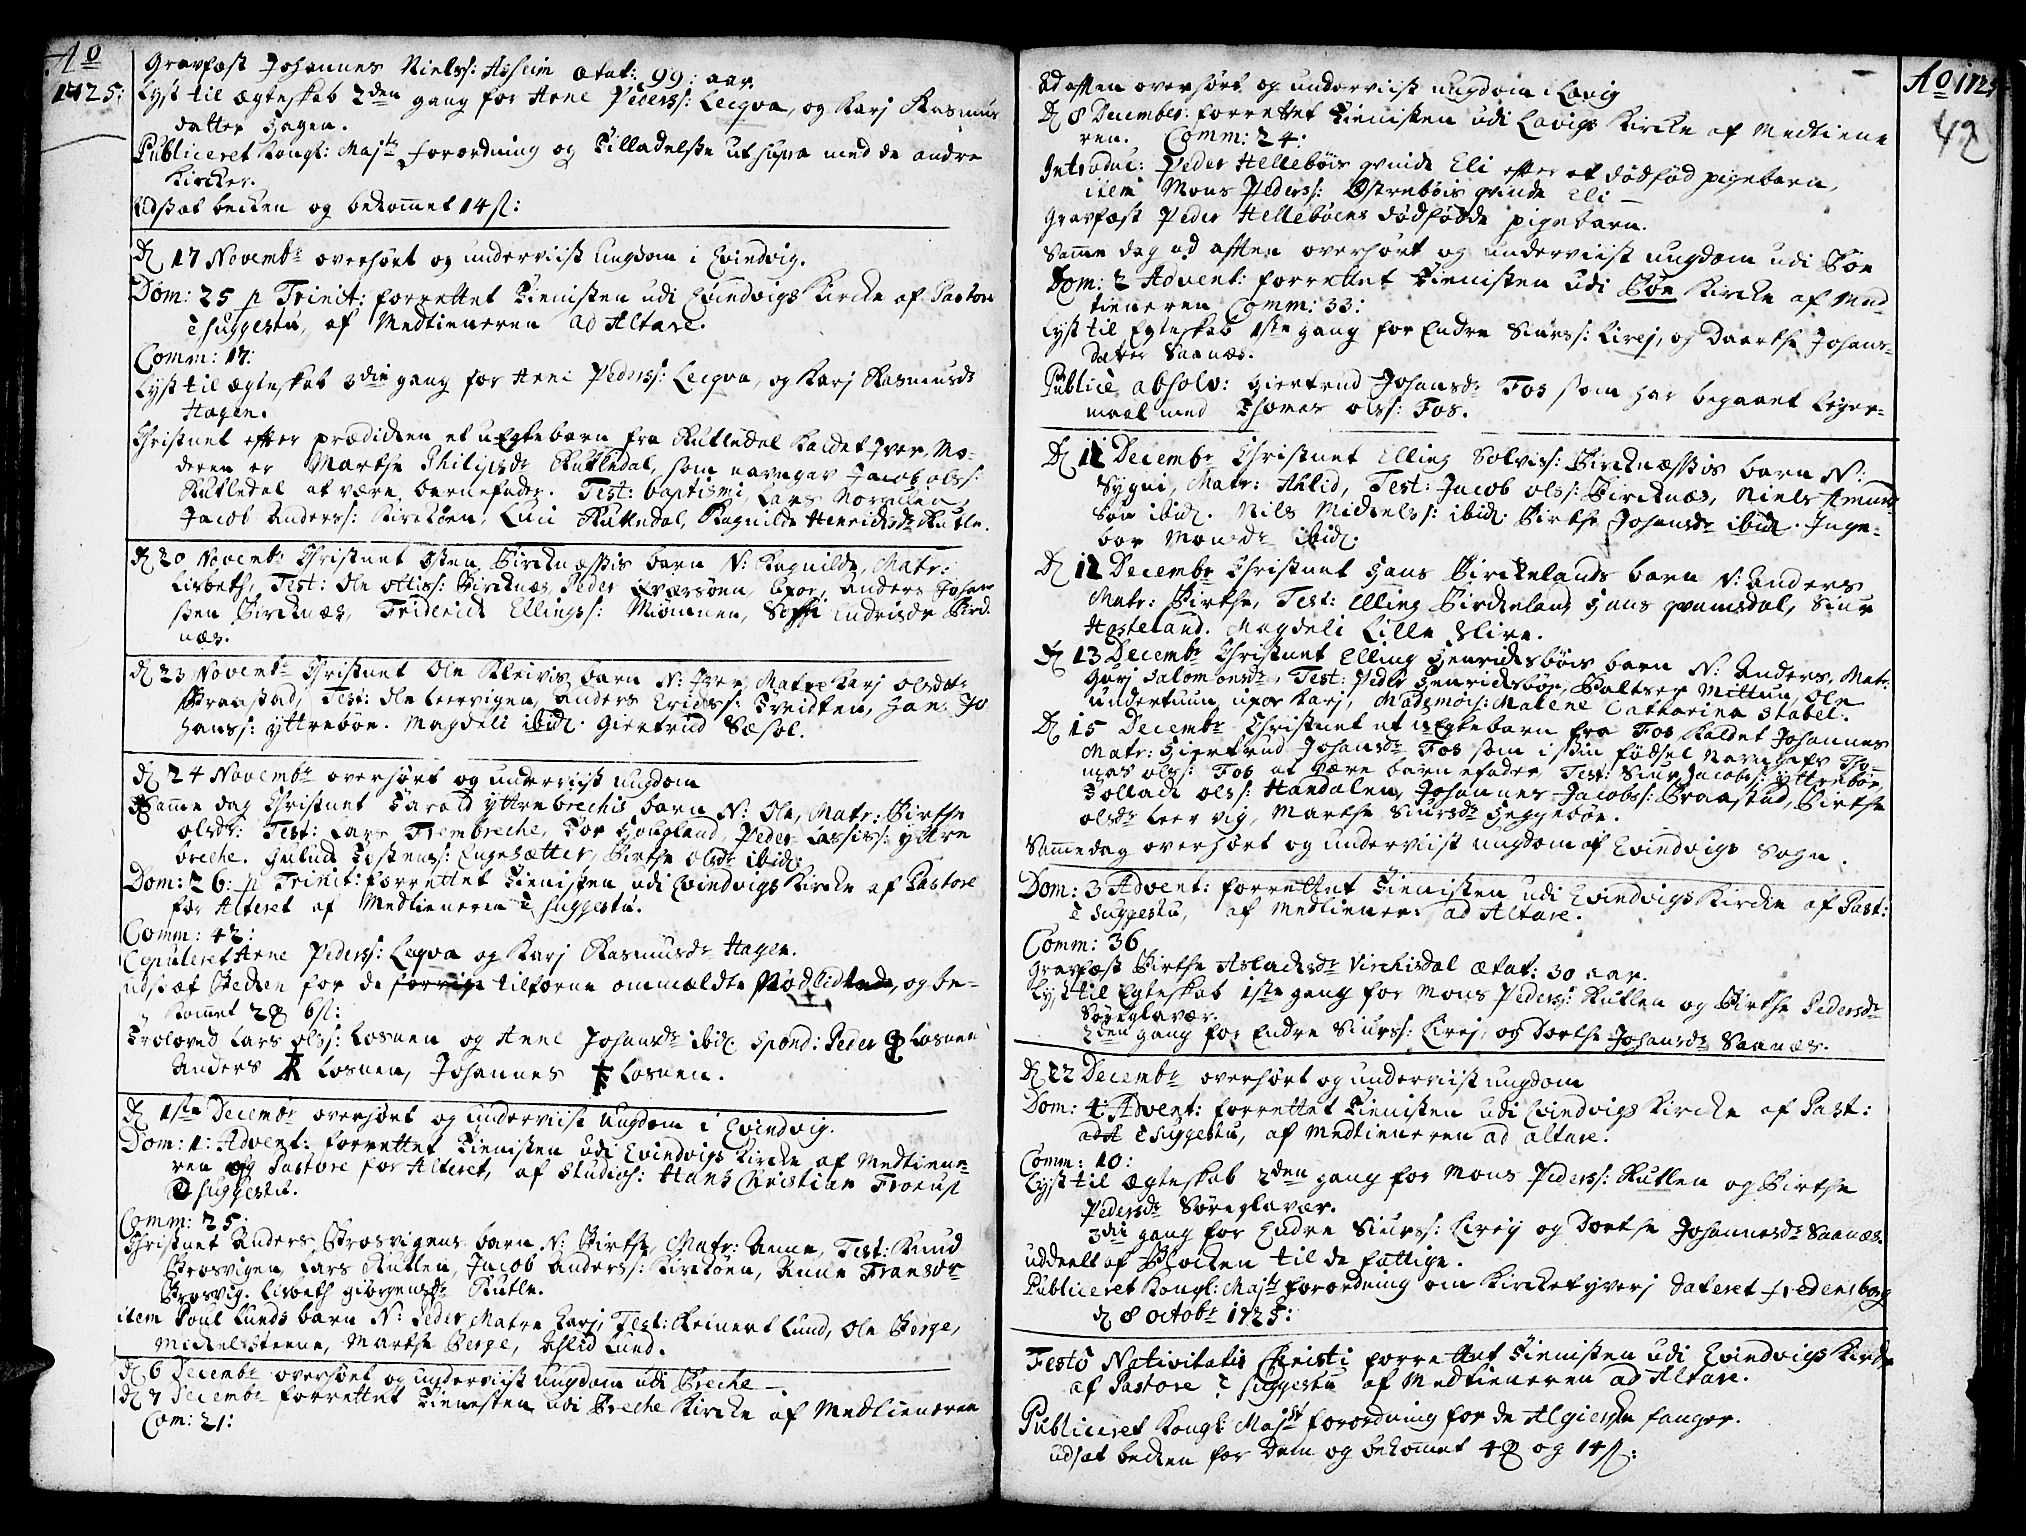 Ao
1725:
Gravfæst Johannes Nielss: Asheim ætat: 99: aar.
Lyst til ægteskab 2den gang for Arne Pederss: Leqva, og Karj Rasmus
datter Hagen.
Publiceret Kongl: Majts forordning og Tilladelse ut supra med de andre
Kircker.
Udsat becken og bekommet 14 s:
D 17 Novembr overhört og underviist Ungdom i Evindvig.
Dom: 25 p Trinit: forrettet Tienisten udi Evindvigs Kircke af Pastore
è suggestu, af Medtieneren ad Altare.
Comm: 17:
Lyst til ægteskab 3die gang for Arne Pederss: Leqva, og Karj Rasmusdr
Hagen.
Christnet efter prædicken et uEgte barn fra Rutledal kaldet Iver, Mo-
deren er Marthe Philipsdr Rutledal, som navngav Jacob olss:
Rutledal at være barnefader. Test: baptismi, Lars
Jacob Anderss: Kircköen, Rutledal, Ragnilde Henrichsdr Rutle.
D 20 Novembr Christnet Osten Bircknæssis barn N: Ragnilde, Matr:
Lisbeth, Test: Ole Bircknæs, Peder Anders Johan
sen Bircknæs, Friderich Ellingss: Miömnen, Endrisdr Birck
næs.
D 23 Novembr Christnet Ole Kleivis barn N: Iver, Matre Karj Olsdr
Braastad, Test: Ole Leervigen, Anders Erichss: Jo
hanss: yttrebön. Magdeli ibid. Giertrud Sæsol.
D 24 Novembr overhört og underviist ungdom
Samme dag Christnet Harald yttrebrechis barn N: Ole, Matr: Birthe
olsdr: Test: Lars Frembreche, Tor Hougland, Peder Lassiss: yttre
breche. Gulud Tostens: Engesætter, Birthe olsdr ibid:
Dom: 26: p Trinit: forrettet Tienisten udi Evindvigs Kircke af Pastore
for Alteret af Medtieneren è suggestu.
Comm: 42:
Copuleret Arne Pederss: Leqva og Karj Rasmusdr Hagen.
Udsat Becken for de forrige tilforne ommældte Nødlidende, og be-
kommet 2 6s:
Troloved Lars olss: Losnen og Anne Johansdr ibid. Spond: Peder Losnen
Anders Losnen, Johannes Losnen.
D 1ste Decembr overhört og underviist Ungdom i Evindvig.
Dom: 1: Advent: forrettet Tienisten udi Evindvigs Kircke af Medtiene-
ren og Pastore for Alteret, af Studios: Hans Christian Frorup
è suggestu.
Comm: 25:
Christnet Anders Brosvigens barn N: Birthe, Matr: Anne, Test: Knud
Brosvigen, Lars Rutlen, Jacob Anderss: Kircköen, Anne Fransdr
Brosvig. Lisbeth giörgensdr Rutle.
item Poul Lunds barn N: Peder Matre Karj, Test: Reinert Lund, Ole Berge,
Mickel Steene, Marthe Berge, Aslid Lund.
D 6 Decembr overhört og underviist ungdom udi Breche.
D 7 Decembr forrettet Tienisten udi Breche Kircke af Medtieneren
Com: 21:
Ao 1725
42
Ad aften overhört og underviist ungdom i Lavig
D 8 December forrettet Tienisten udi Lavigs Kircke af Medtiene
ren. Comm: 24:
Introduc: Peder Helleböis qvinde Eli efter et dödföd pigebarn,
item Mons Pederss: Ostrebóis qvinde Eli —
Gravfæst Peder Hellebóens dödfödde pigebarn.
Samme dag ad aften overhört og underviist ungdom udi Bøe
Dom: 2 Advent: forrettet Tienisten udi Bøe Kircke af Med
tieneren Comm: 33:
Lyst til Egteskab 1ste gang for Endre Siurss: Lirej, og Daarthe Johans-
dater Saanæs.
Publicè absolv: Giertrud Johansdr Fos som har begaaet Leger-
maal med Thomes olss: Fos.
D 12 Decembr Christnet Elling Solviss: Bircknæssis barn N:
Sygni, Matr: Ahlid, Test: Jacob olss: Bircknæs, Niels Amund
sön ibid. Nils Michelss: ibid. Birthe Johansdr ibid. Inge-
bor Monsdr ibid.
D 12 Decembr Christnet Hans Birckelands barn N: Anders
Matr: Birthe, Test: Elling Birckeland, Hans qvamsdal, Siur
Hosteland. Magdeli Lille Slire.
D 13 Decembr Christnet Elling Henrichsböis barn N: Anders, Matr:
Guri Salomonsdr, Test: Peder Henrichsböe, Baltser Mittun, Ole
Undertuun, Karj, Mademois: Malene Catharina Stabel.
D 15 Decembr Christnet et uEgte barn fra Fos kaldet Johannes
Matr: Giertrud Johansdr Fos som i sin födsel Navngafv Tho-
mas olss: Fos at være barnefader, Test: Siur Jacobss: yttreböe,
Tollach olss: Handalen, Johannes Jacobss: Braastad, Birthe
olsdr Leervig, Marthe Siursdr Heggeböe.
Samme dag overhört og underviist ungdom af Evindvigs Sogn.
Dom: 3 Advent: forrettet Tienisten udi Evindvigs Kircke af Past:
è suggestu, af Medtiener: ad Altare.
Comm: 36
Gravfæst Birthe Aslachsdr Virchisdal ætat: 30 aar.
Lyst til Egteskab 1ste gang for Mons Pederss: Rutlen og Birthe Pedersdr
Söreglavær.
2den gang for Endre Siurss: Lirej, og Dorthe Johansdr Saanæs.
D 22 Decembr overhört og underviist ungdom
Dom: 4: Advent: forrettet Tienisten udi Evindvigs Kircke af Past:
ad A è suggestu, af Medtieneren ad altare.
Comm: 10:
Lyst til Ægteskab 2den gang for Mons Pederss: Rutlen og Birthe
Pedersdr Söreglavær.
3die gang for Endre Siurss: Lirej og Dorthe Johannesdr Saanæs.
uddeelt af Blocken til de fattige.
Publiceret Kongl: Majts forordning om Kircketyverj dateret Fredensborg
D 8 octobr 1725:
Festo Nativitatis Christi forrettet Tienisten udi Evindvigs Kircke
af Pastore è suggestu af Medtieneren ad Altare.
Publiceret Kongl: Majst forordning for de Algierske fanger.
udsat becken for dem og bekommet 4 og 14 s: